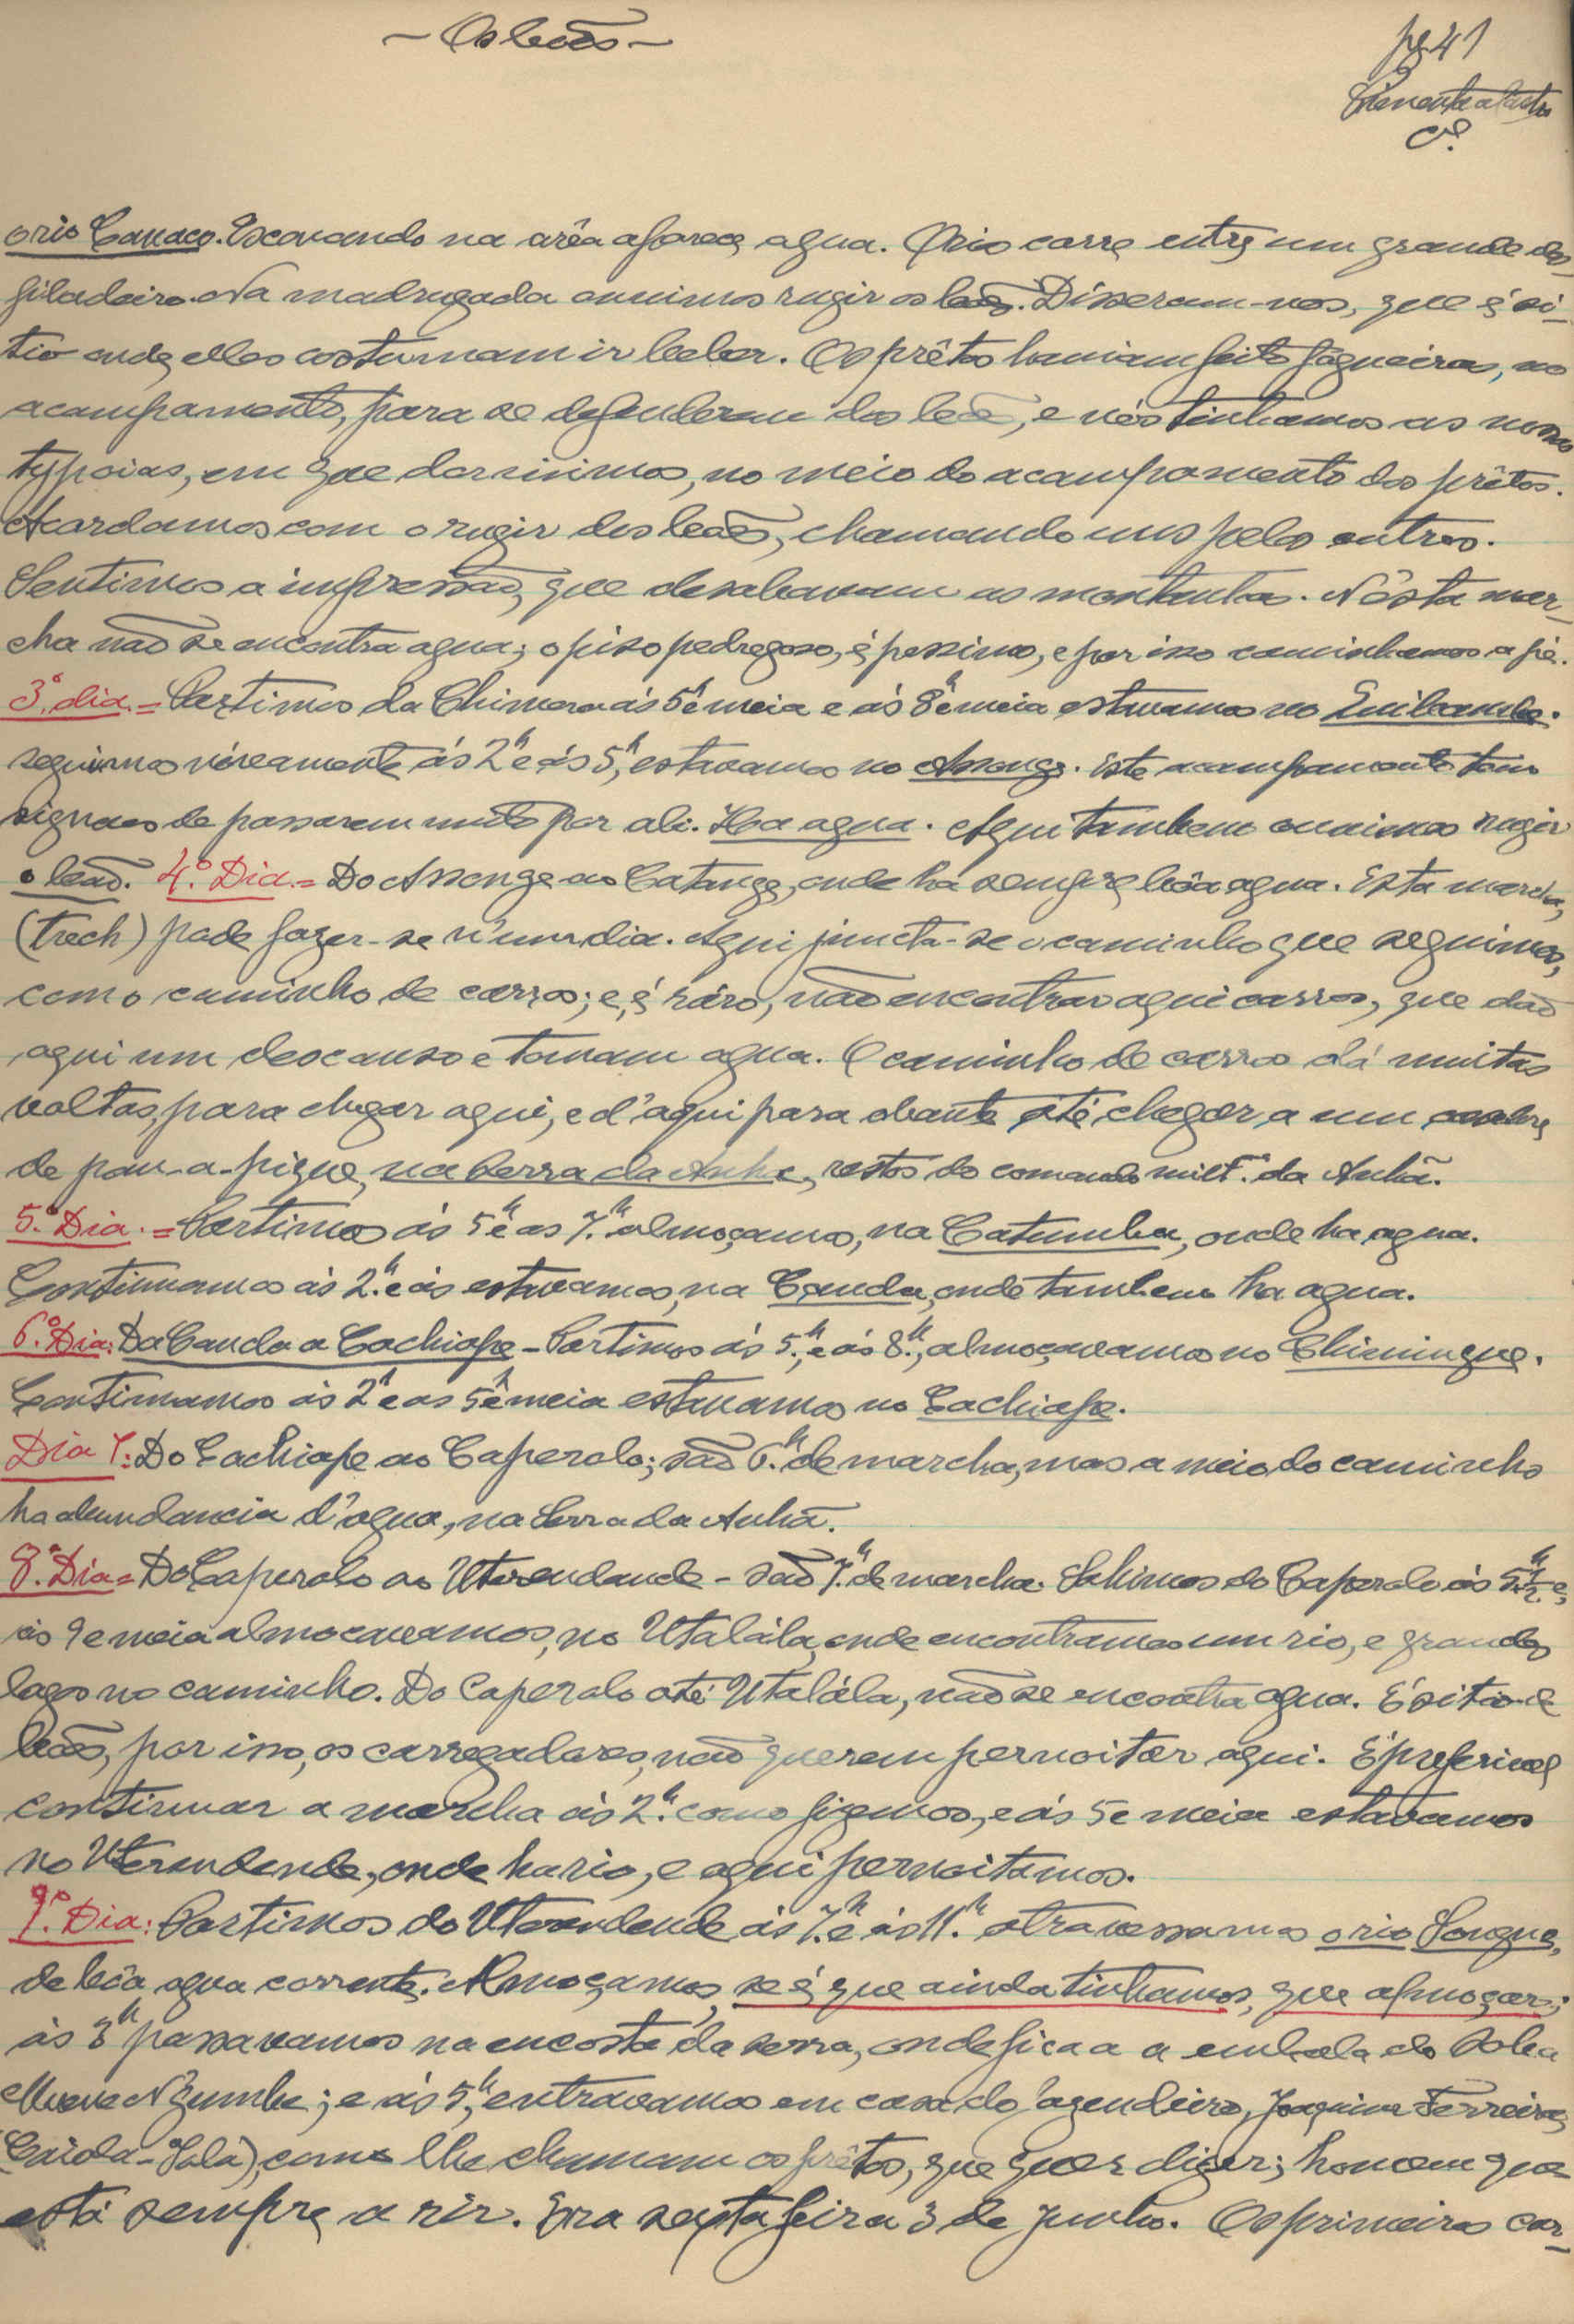 ~ Os leões ~
pg 41
Pimenta e Castro
Cel.
o rio Cavaco. Escavando na arêa aparece agua. O rio corre entre um grande des-
filadeiro. Na madrugada ouvimos rugir os leões. Disseram-nos, que é si-
tio onde elles costumam ir beber. Os prêtos haviam feito fogueiras, no
acampamento, para se defenderem dos leões, e nós tinhamos as nossas
typoias, em que dormimos, no meio do acampamento dos prêtos.
Acordamos com o rugir dos leões, chamando uns pelos outros.
Sentimos a impressão, que desabavam as montanhas. Nésta mar-
cha não se encontra agua; o piso pedregoso, é pessimo, e por isso caminhamos a pé.
3.º dia = Partimos da Chimera ás 5h e meia e ás 8h e meia estavamos no
seguimos novamente ás 2h e ás 5h, estavamos no Assenge. Este acampamento tem
signaes de passarem muito por ali. Ha agua. Aqui tambem ouvimos rugir
o leão. 4.º Dia = Do Assenge ao Catenge, onde há sempre bôa agua. Esta marcha,
(trech) pode fazer-se n'um dia. Aqui juncta-se o caminho que seguimos,
com o caminho de carros; e, é ráro, não encontrar aqui carros, que dão
aqui um descanso e tomam agua. O caminho de carros dá muitas
voltas, para chegar aqui, e d'aqui para diante até chegar a um
de pau-a-pique, na serra da Anha, restos do comando milt.ar da Anhã.
5.º Dia = Partimos ás 5h e as 7h almoçamos, na Catumba, onde ha agua.
Continuamos ás 2h e ás estavamos, na Canda, onde tambem ha agua.
6.º Dia: Da Canda a Cachiape - Partimos ás 5h, e ás 8h, almoçavamos no Chimingue.
Continuamos ás 2h e as 5h e meia estavamos no Cachiape.
Dia 7: Do Cachiape ao Caperalo; são 6h de marcha, mas a meio do caminho
ha abundancia d'agua, na Serra da Anhã.
8.º Dia = Do Caperalo ao Uterendende - são 7h de marcha. Sahimos do Caperalo ás 5h 1/2 e,
ás 9 e meia almoçavamos, no Utalála, onde encontramos um rio, e grandes
lagos no caminho. Do Caperalo até Utalála, não se encontra agua. É sitio de
leões, por isso, os carregadores, não querem pernoitar aqui. É preferivel
continuar a marcha ás 2h como fizemos, e ás 5 e meia estavamos
no Uterendende, onde ha rio, e aqui pernoitamos.
9.º Dia: Partimos do Uterendende ás 7h e ás 11h atravessamos o rio Songue,
de bôa agua corrente. Almoçamos, se é que ainda tinhamos, que almoçar;
ás 3h passavamos na encosta da serra, onde fica a embala do Soba
Muene N'Zumba; e ás 5h, entravamos em casa do fazendeiro, Joaquim Ferreira,
(Caida-Sala), como lhe chamam os prêtos, que quer dizer; homem que
está sempre a rir. Era sexta feira 3 de Junho. Os primeiros car-